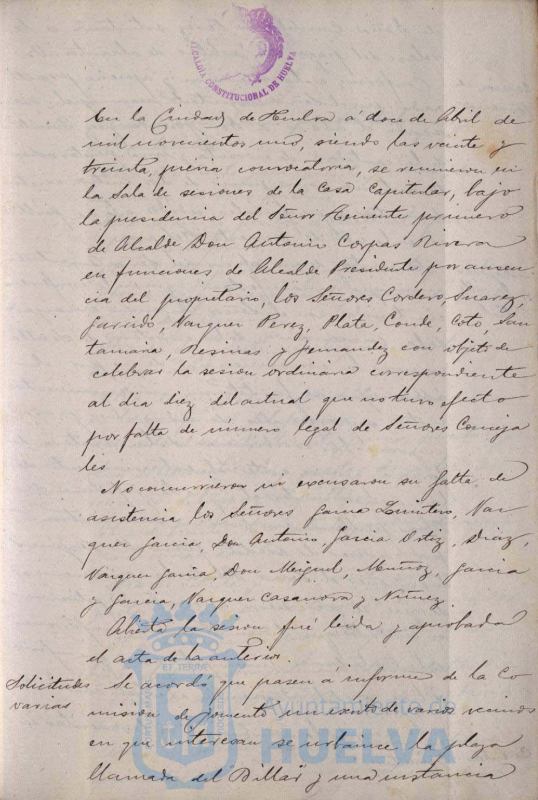 ALCALDÍA CONSTITUCIONAL DE HUELVA
En la Ciudad de Huelva á doce de Abril de
mil novecientos uno, siendo las veinte y
treinta, previa convocatoria, se reunieron en
la Sala de sesiones de la Casa Capitular, bajo
la presidencia del Señor Teniente primero
de Alcalde Don Antonio Corpas Rivera
en funciones de Alcalde Presidente por ausen
cia del propietario, los Señores Cordero, Suarez,
Garrido, Vazquez Perez, Plata, Conde, Coto, San
tamaria, Resinas y Fernandez con objeto de
celebrar la sesion ordinaria correspondiente
al dia diez del actual que no tuvo efecto
por falta de número legal de Señores Conceja
les
No concurrieron ni excusaron su falta de
asistencia los Señores Garcia Quintero, Vaz
quez Garcia, Don Antonio, Garcia Ortiz, Diaz,
Vazquez Garcia, Don Miguel, Muñoz, Garcia
y Garcia, Vazquez Casanova y Nuñez.
Abierta la sesion fué leida y aprobada
el acta de la anterior.
Solicitudes
varias
Se acordó que pasen á informe de la Co
mision de fomento un escrito de varios vecinos
en que interesan se urbanice la plaza
llamada del Billar y una instancia
Ayuntamiento de
HUELVA